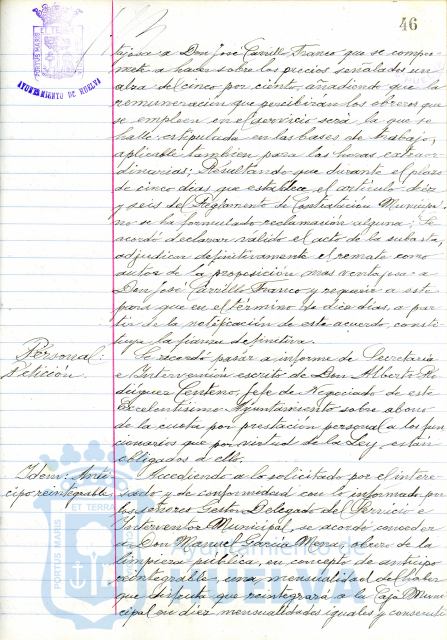 46
PORTUS MARIS
AYUNTAMIENTO DE HUELVA
tajosa a Don José Carrillo Franco que se compro-
mete a hacer sobre los precios señalados un
alza de cinco por ciento, añadiendo que la
remuneración que percibirán los obreros que
se empleen en el servicio será la que se
halle estipulada en las bases de trabajo,
aplicable tambien para las horas extraor-
dinarias; Resultando que durante el plazo
de cinco dias que establece el artículo diez
y seis del Reglamento de Contratación Municipal
no se ha formulado reclamación alguna; Se
acordó declarar válido el acto de la subasta,
adjudicar definitivamente el remate como
autor de la proposición mas ventajosa a
Don José Carrillo Franco y requerir a este
para que en el término de diez dias, a par-
tir de la notificación de este acuerdo, consti-
tuya la fianza definitiva.
Personal:
Petición.
Se acordó pasar a informe de Secretaria
e Intervención escrito de Don Alberto Ro-
dríguez Centeno, Jefe de Negociado de este
Excelentísimo Ayuntamiento sobre abono
de la cuota por prestación personal a los fun-
cionarios que por virtud de la Ley, están
obligados a ello.
Idem: Anti-
cipo reintegrable.
Accediendo a lo solicitado por el intere-
sado y de conformidad con lo informado por
los señores Gestor Delegado del Servicio e
Interventor Municipal, se acordó conceder
a Don Manuel García Mena, obrero de la
limpieza pública, en concepto de anticipo
reintegrable, una mensualidad del haber
que disfruta que reintegrará a la Caja Muni-
cipal en diez mensualidades iguales y consecuti-
PORTUS MARIS
ET TERRAE
Ayuntamiento de
HUELVA